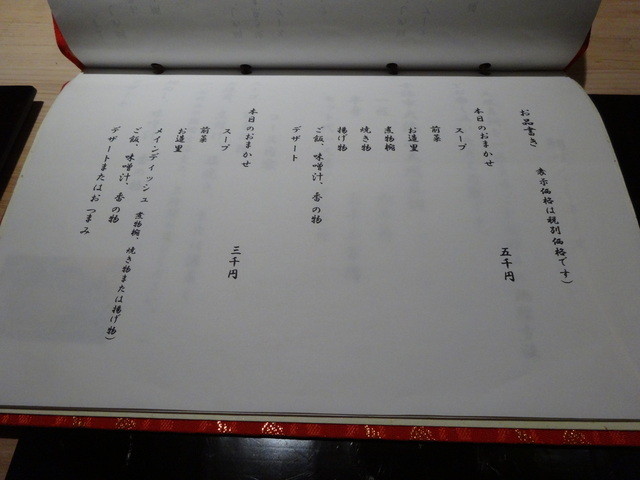 お品書き
表示価格は税別価格です)
本日のおまかせ 五千円
スープ
前菜
お造里
煮物椀
焼き物
揚げ物
ご飯、味噌汁、香の物
デザート
本日のおまかせ 三千円
スープ
前菜
お造里
メインディッシュ 煮物椀、焼き物または揚げ物)
ご飯、味噌汁、香の物
デザートまたはおつまみ